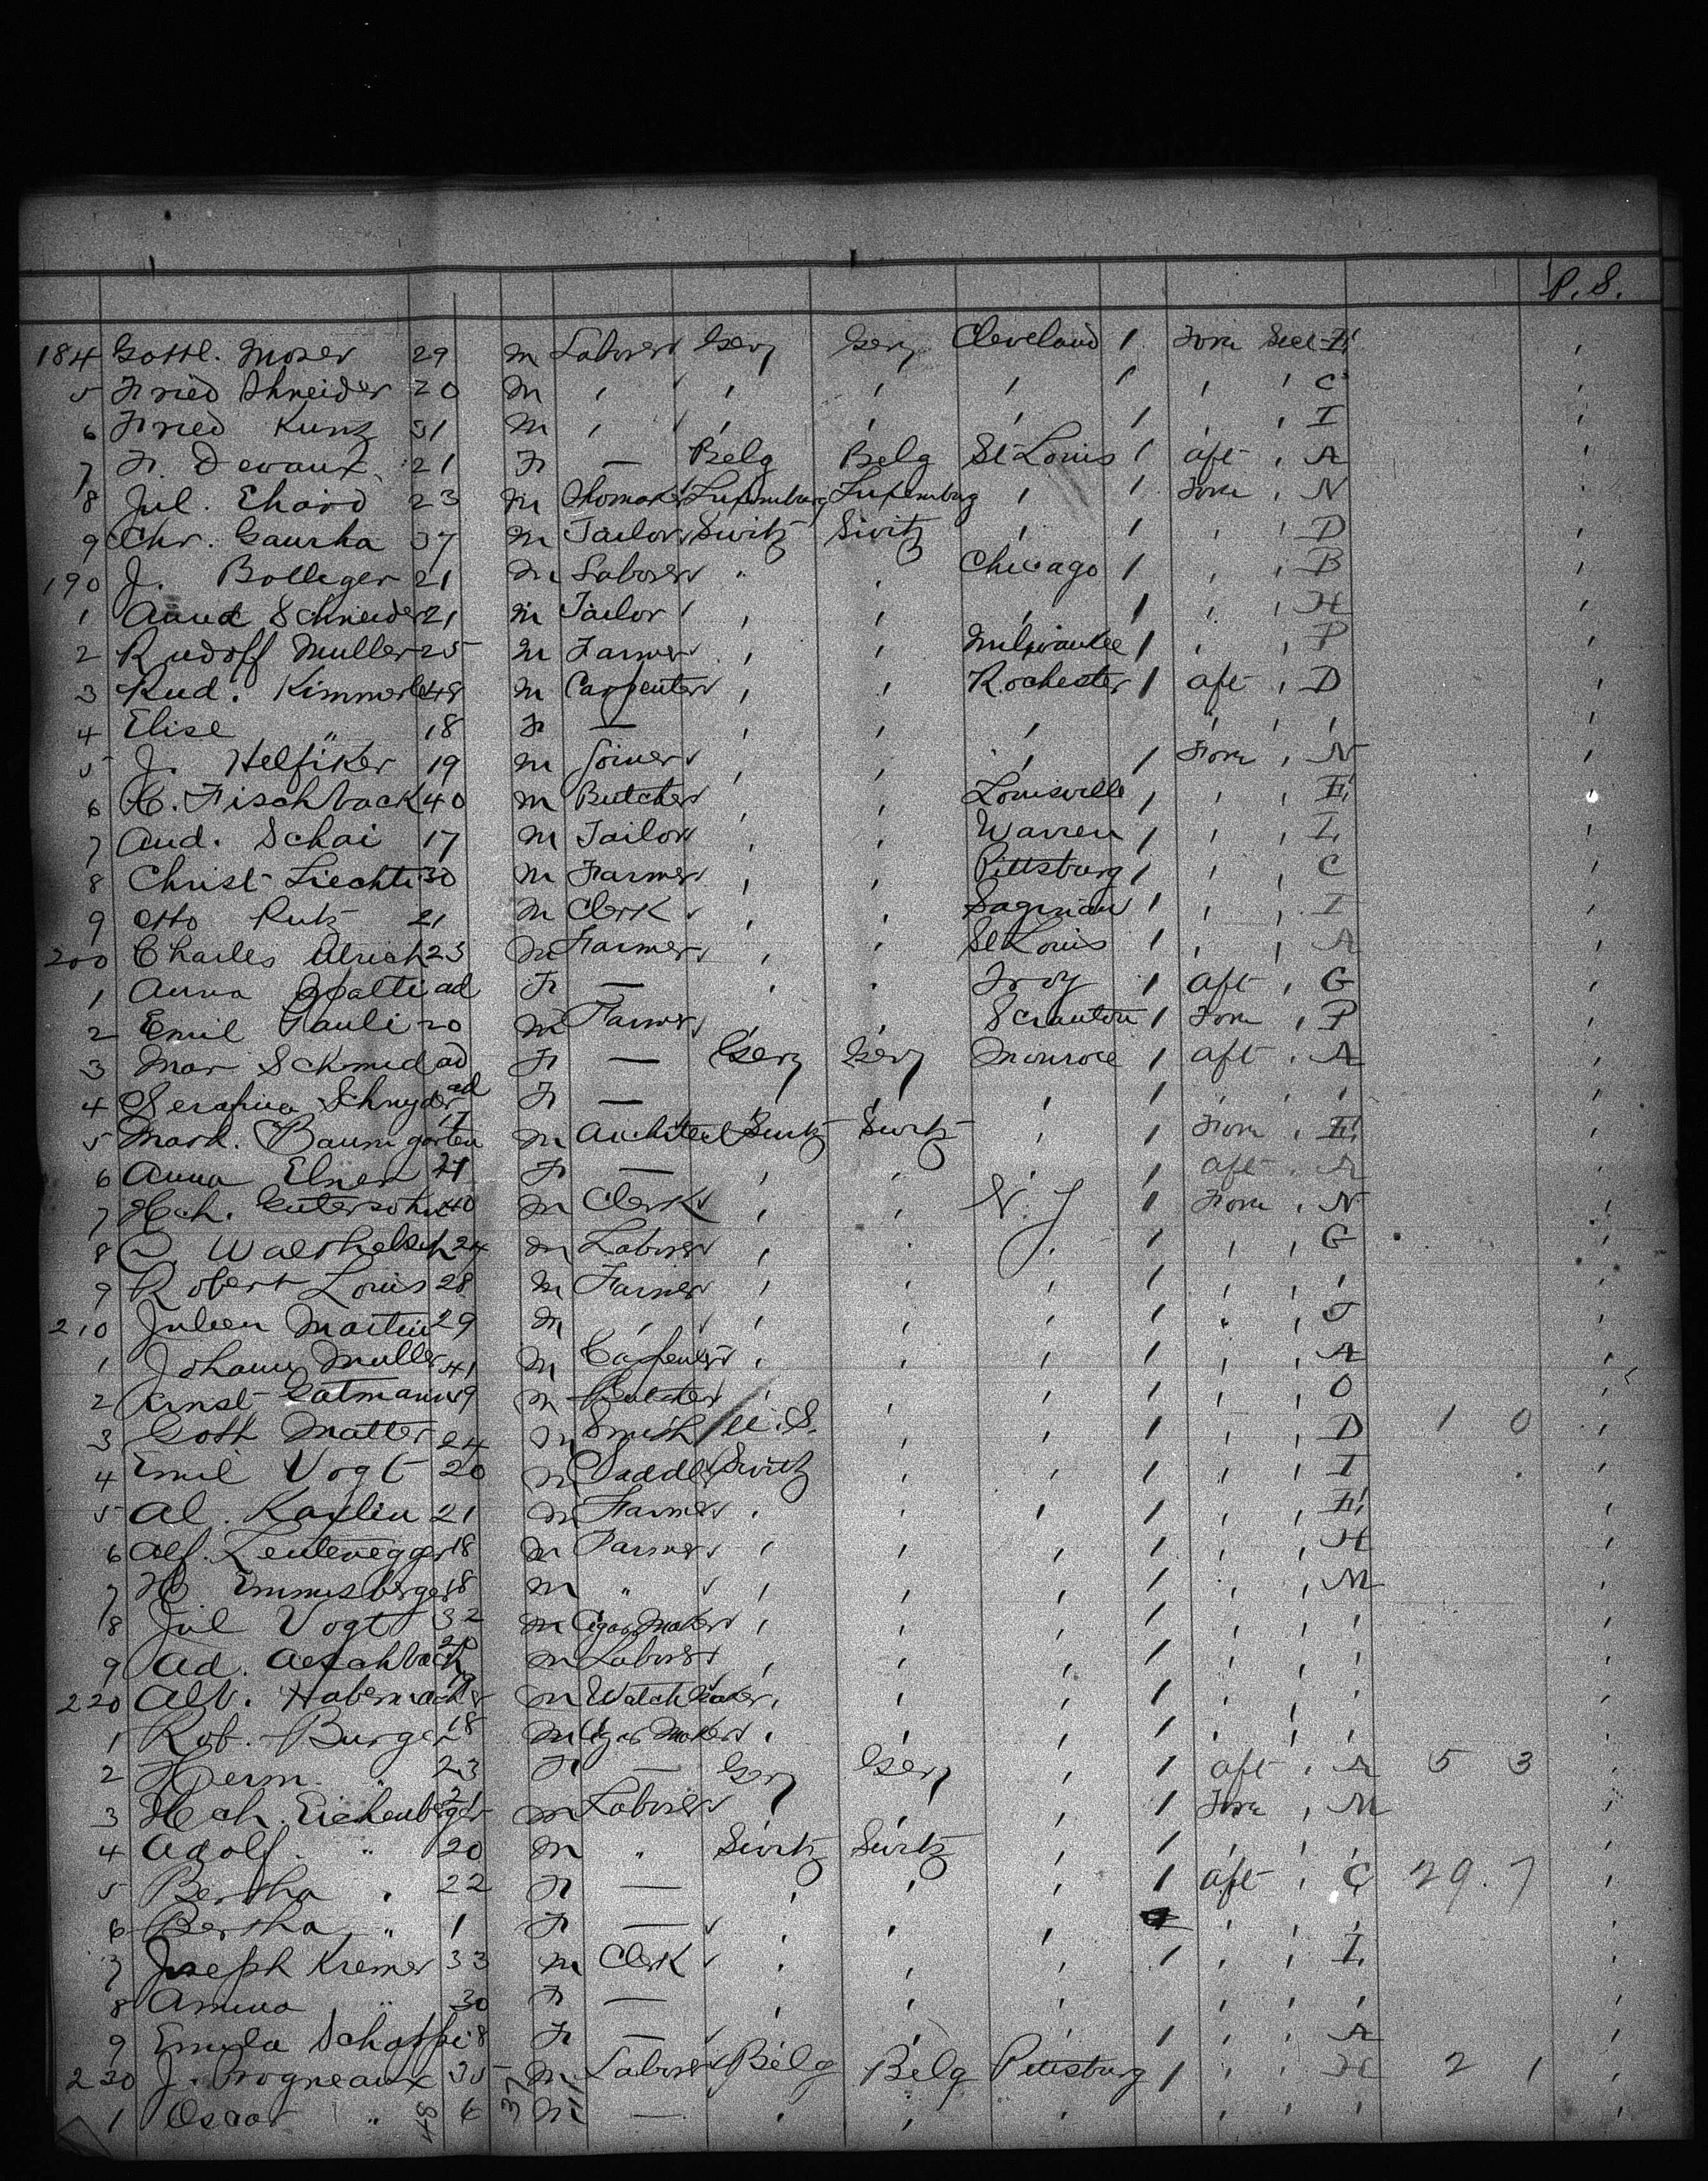 P. S.
184 Gottl. Moser 29 m Laborer Gery Gery Cleveland 1 Fore Seel E
5 Fried Shneider 20 m , , , , 1 , , C
6 Fried Kunz 31 m , , , , 1 , , I
7 F. Devaux 21 F — Belg Belg St Louis 1 aft , A
8 Jul. Ehard 23 m Shomaker Luxemburg Luxemburg , 1 Fore , N
9 Chr. 37 m Tailor Switz Switz , 1 , , D
190 J. Bolliger 21 m Laborer " , Chicago 1 , , B
1 Schneider 21 m Tailor , , , 1 , , H
2 Rudoff Muller 25 m Farmer , , Milwaukee 1 , , P
3 Rud. Kimmerle 48 m Carpenter , , Rochester 1 aft , D
4 Elise " 18 F — , , , , , ,
5 J. Helfiker 19 m Joiner , , , 1 Fore , N
6 Fischback 40 m Butcher , , Louisville , , , E
7 And. Schai 17 m Tailor , , Warren 1 , , L
8 Christ Liechti 30 m Farmer , , Pittsburg 1 , , C
9 Otto Rutz 21 m Clerk , , Saginaw 1 , , I
200 Charles Ulrich 23 m Farmer , , St Louis 1 , , A
1 Anna ad F — , , Troy 1 aft , G
2 Emil Pauli 20 m Farmer , , Scranton 1 Fore , P
3 Mar Schmid ad F — Gery Gery Monroe 1 aft , A
4 Serafina Schnyder ad F — , , , 1 , , ,
5 Mark. Baumgarten 17 m Architect Switz Switz , 1 Fore , E
6 Anna Elner 21 F — , , , 1 aft , A
7 Hch. Gutersohn 40 m Clerk , , N. Y 1 Fore , N
8 24 m Laborer , , , 1 , , G
9 Robert Louis 28 m Farmer , , , 1 , , ,
210 Julien Martin 29 m , , , , 1 , , J
1 Johann Muller 41 m Carpenter , , , 1 , , A
2 Ernst Gutmann 19 m Butcher , , , 1 , , O
3 Gott Matter 24 m Smith U. S. , , 1 , , D 1 0
4 Emil Vogt 20 m Saddler Switz , , 1 , , I
5 Al. Kaylin 21 m Farmer , , , 1 , , E
6 Alf. Leutenegger 18 m Farmer , , , 1 , , H
7 Emmisberger 18 m " , , , 1 , , M
8 Jul Vogt 32 m Cigar Maker , , , 1 , , ,
9 Ad. Aeschbach 20 m Laborer , , , 1 , , ,
220 Alb. Habermacher 19 m Watch Maker , , , 1 , , ,
1 Rob. Burger 18 m Cigar Maker , , , 1 , , ,
2 Herm. " 23 F — Gery Gery , 1 aft , A 5 3
3 Hch. Eichenberger 21 m Laborer , , , 1 Fore , M
4 Adolf " 20 m " Switz Switz , 1 , , ,
5 Bertha " 22 F — , , , 1 aft , C 29. 7
6 Bertha " 1 F — , , , , , ,
7 Joseph Kremer 33 m Clerk , , , 1 , , L
8 " 30 F — , , , , , ,
9 Schoffi 18 F — , , , 1 , , A
230 J. Progneaux 35 m Laborer Belg Belg Pittsburg 1 , , H 2 1
1 Oscar " 48 6 37 m 11 — , , , , , ,